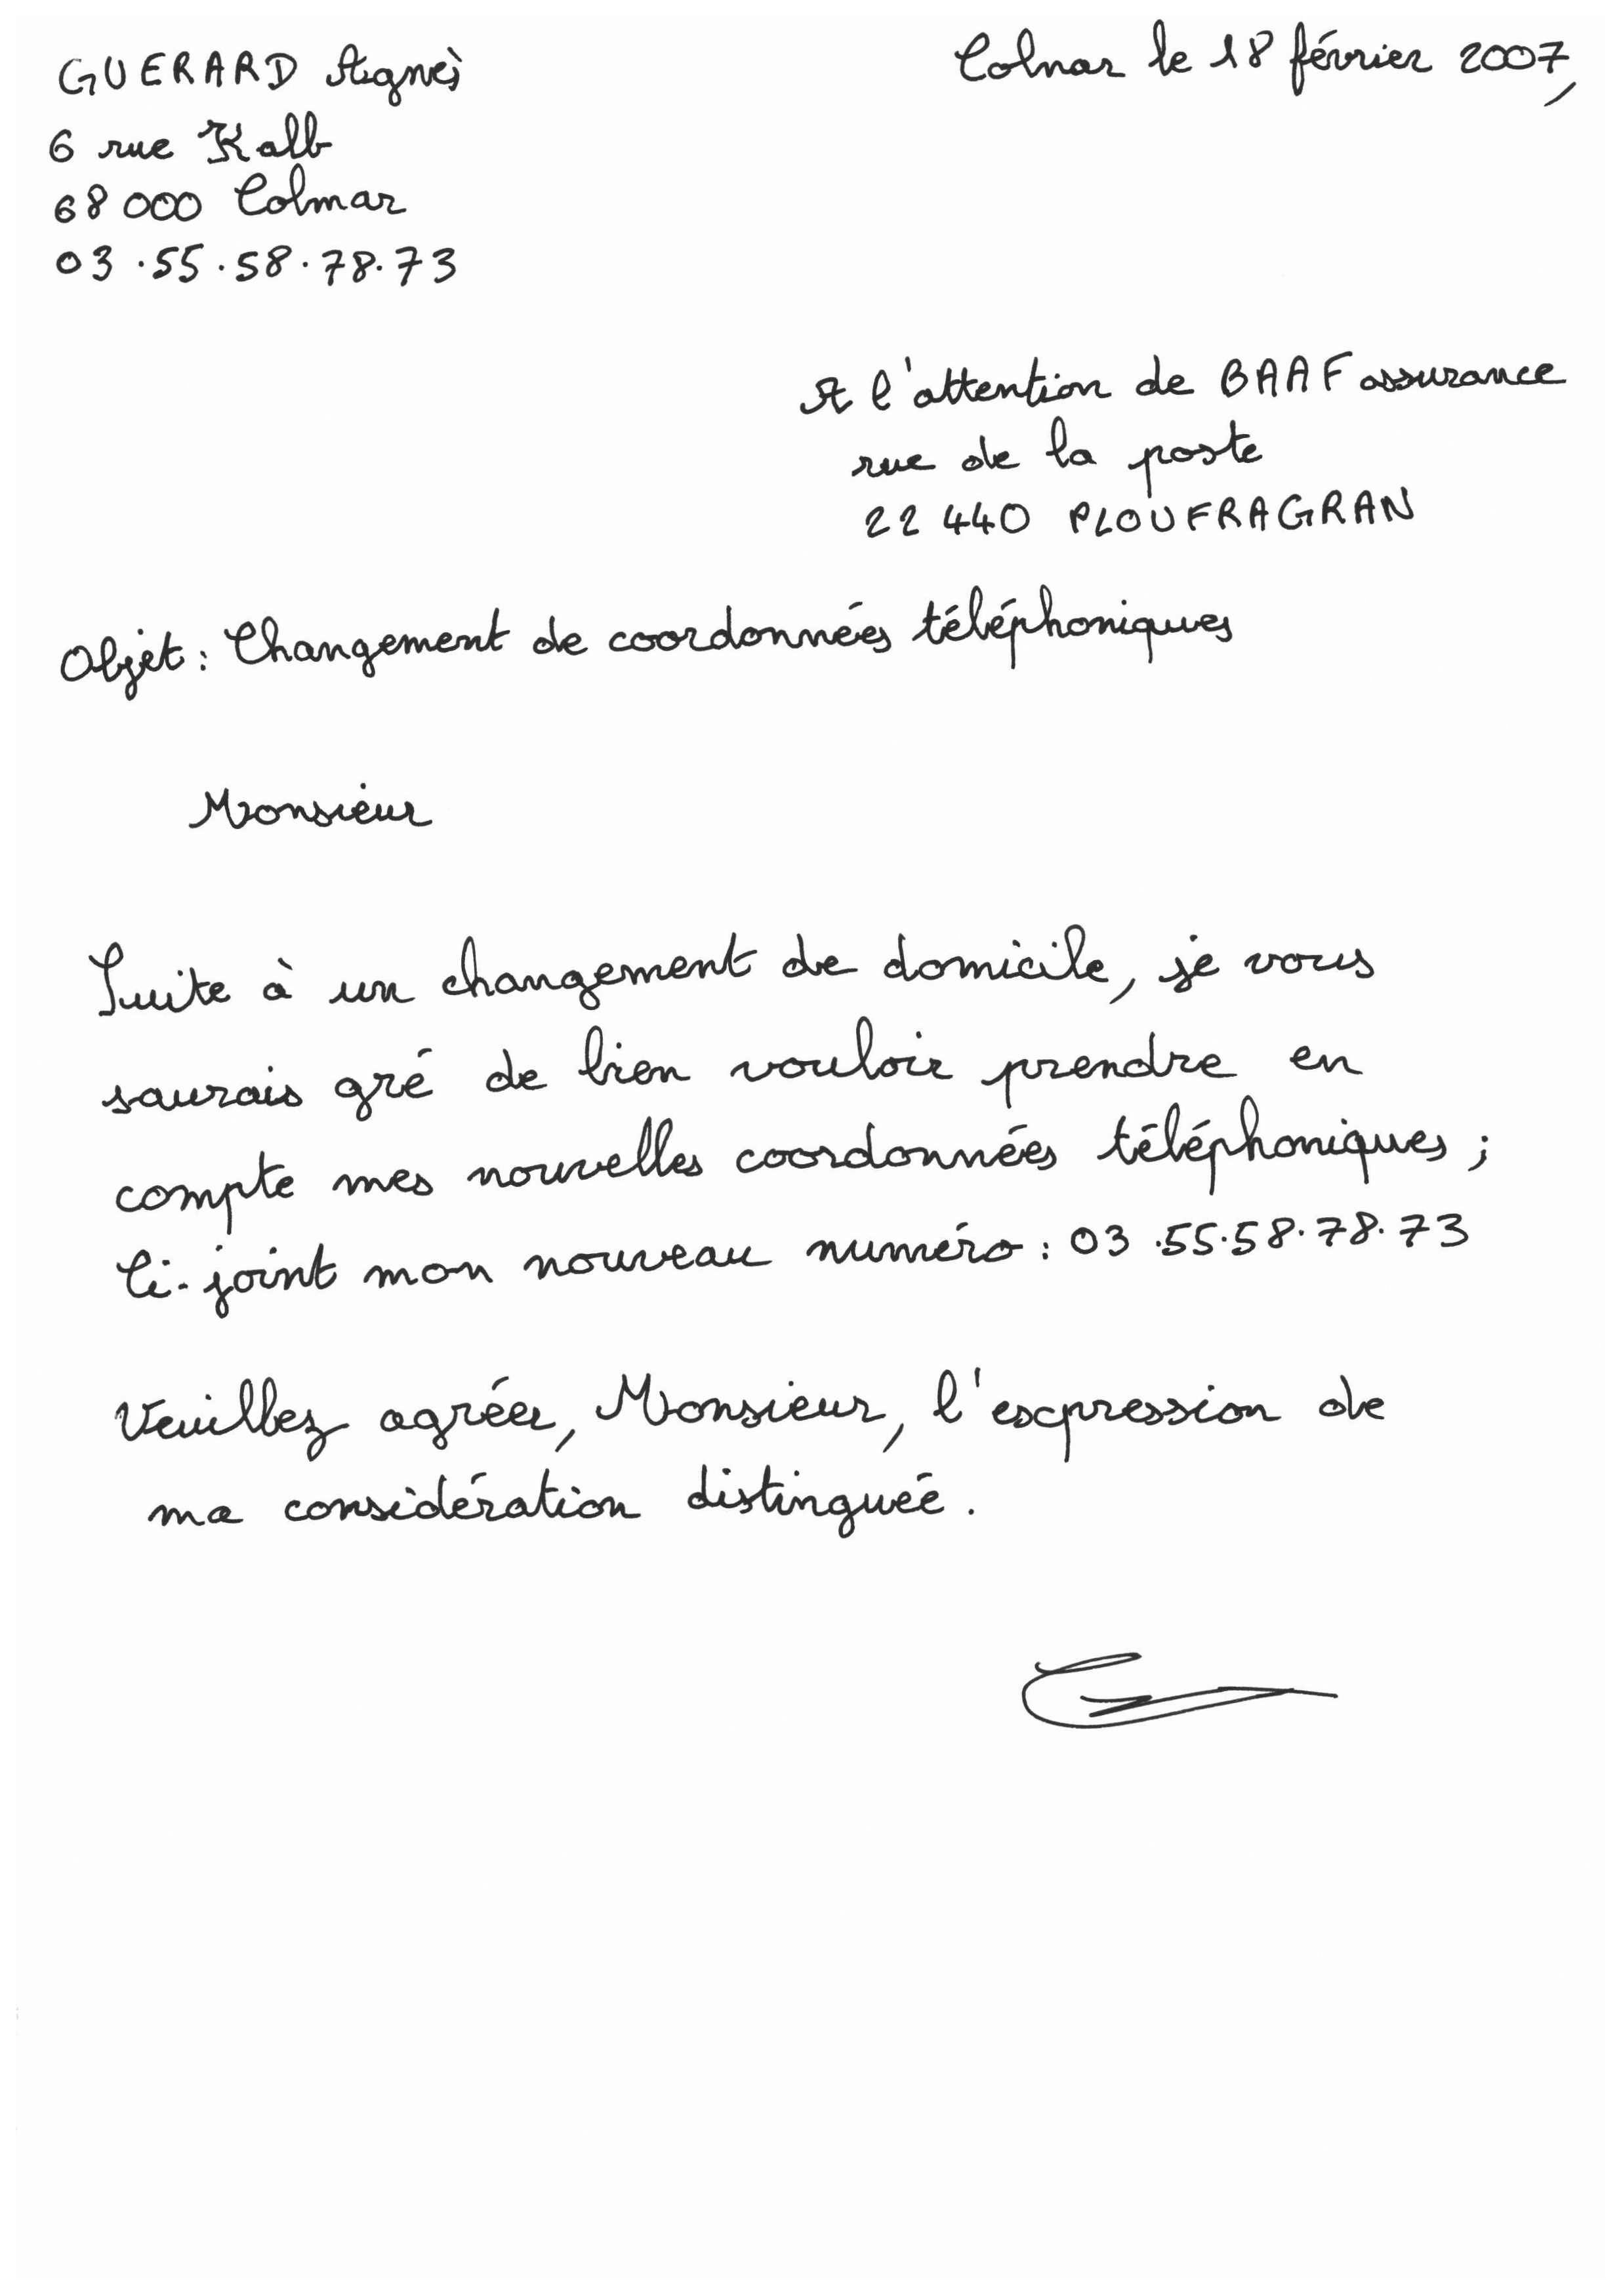 GUERARD Agnès
Colmar le 18 février 2007,
6 rue Kalb
68 000 Colmar
03.55.58.78.73
A l'attention de BAAF assurance
rue de la poste
22 440 PLOUFRAGRAN
Objet : Changement de coordonnées téléphoniques
Monsieur
Suite à un changement de domicile, je vous
saurais gré de bien vouloir prendre en
compte mes nouvelles coordonnées téléphoniques ;
Ci-joint mon nouveau numéro : 03.55.58.78.73
Veuillez agréer, Monsieur, l'expression de
ma considération distinguée.